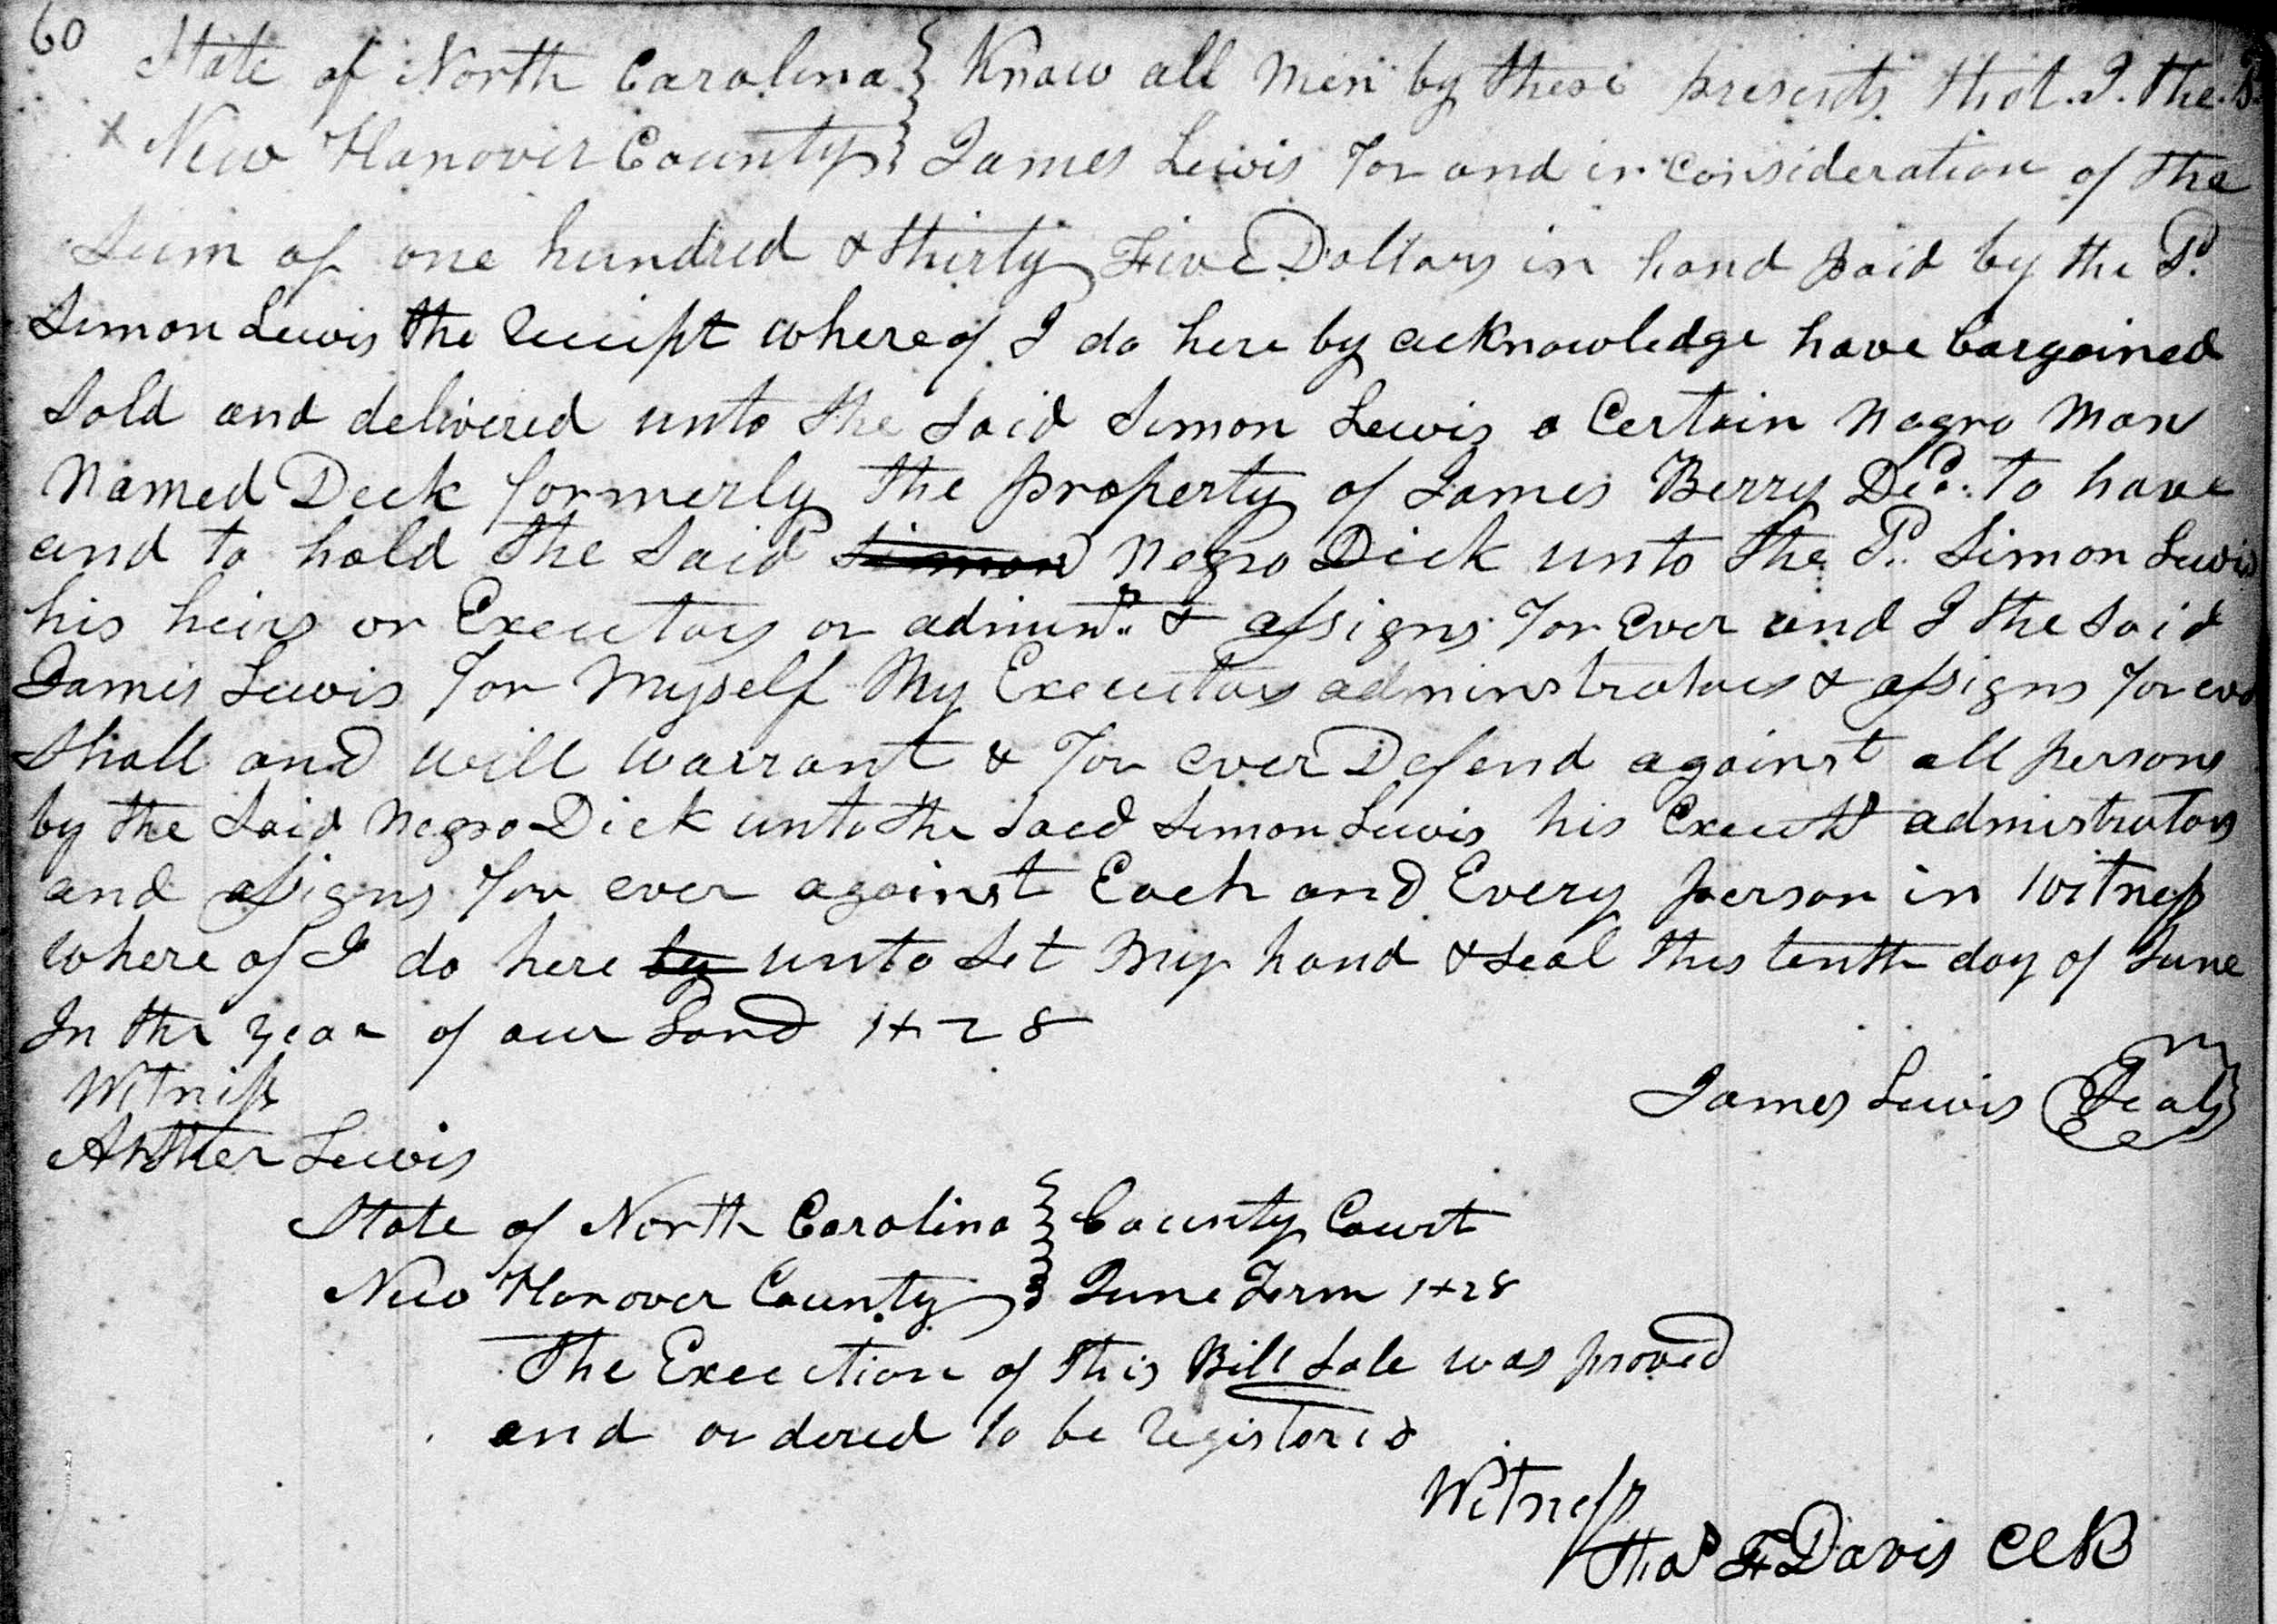 60
State of North Carolina } Know all Men by these presents that I the Sd.
x New Hanover County } James Lewis for and in Consideration of the
Sum of one hundred & thirty Five Dollars in hand paid by the Sd.
Simon Lewis the Receipt where of I do here by acknowledge have bargained
Sold and delivered unto the Said Simon Lewis a Certain Nagro Man
Named Deck formerly the property of James Berry Decd. To have
and to hold the Said Simon Negro Dick unto the Sd. Simon Lewis
his heirs or Executors or admin & assigns for Ever and I the Said
James Lewis for Myself My Executors adminstrators & assigns for
Shall and will warrant & for ever Defend against all persons
by the Said Negro Dick unto the Saed Simon Lewis his admistrators
and assigns for ever against Each and Every person in Witness
where of I do here by unto Set My hand & Seal this tenth day of June
In the year of our Lord 1828
Witness
James Lewis Seal
Arther Lewis
State of North Carolina } County Court
New Hanover County } June Term 1828
The Execution of this Bill Sale was proved
and ordered to be Registored
Witness
Thos F Davis Clk